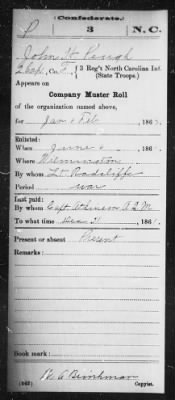 Confederate.
P 3 N.C.
John H. Peugh
Co. 3 Reg't North Carolina Inf.
(State Troops.)
Appears on
Company Muster Roll
of the organization named above,
for Jan & Feb, 186
Enlisted:
When June, 186
Where Wilmington
By whom Lt Radcliffe
Period war
Last paid:
By whom Capt A.Q.M.
To what time Dec 31, 186
Present or absent Present
Remarks:
Book mark:
(642) Copyist.